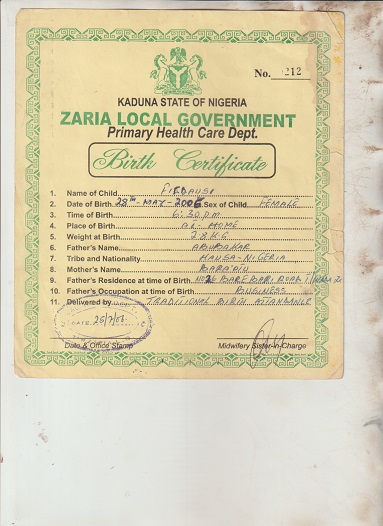 No. 212
KADUNA STATE OF NIGERIA
ZARIA LOCAL GOVERNMENT
Primary Health Care Dept.
Birth Certificate
1. Name of Child FIRDAUSI
2. Date of Birth 28TH-MAY-2006 Sex of Child FEMALE
3. Time of Birth 6:30pm
4. Place of Birth AT-HOME
5. Weight at Birth 2.8KG
6. Father's Name ABUBAKAR
7. Tribe and Nationality HAUSA-NIGERIA
8. Mother's Name
9. Father's Residence at time of Birth
10. Father's Occupation at time of Birth BUSINESS
11. Delivered by TRADITIONAL BIRTH ATTANDANCE
DATE
Date & Office Stamp Midwifery Sister-in-Charge